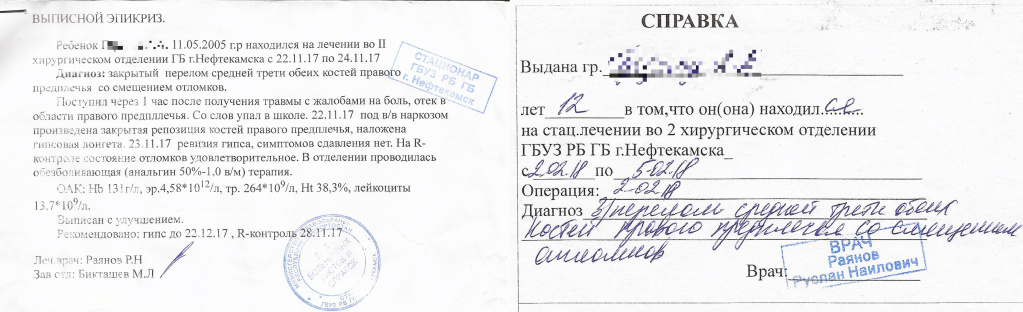 ВЫПИСНОЙ ЭПИКРИЗ.
Ребенок 11.05.2005 г.р находился на лечении во II
хирургическом отделении ГБ г.Нефтекамска с 22.11.17 по 24.11.17
Диагноз: закрытый перелом средней трети обеих костей правого
предплечья со смещением отломков.
Поступил через 1 час после получения травмы с жалобами на боль, отек в
области правого предпллечья. Со слов упал в школе. 22.11.17 под в/в наркозом
произведена закрытая репозиция костей правого предплчья, наложена
гипсовая лонгета. 23.11.17 ревизия гипса, симптомов сдавления нет. На R-
контроле состояние отломков удовлетворительное. В отделении проводилась
обезболивающая (анальгин 50%-1,0 в/м) терапия.
ОАК: Hb 131г/л, эр.4,58*10¹²/л, тр. 264*10⁹/л, Ht 38,3%, лейкоциты
13,7*10⁹/л.
Выписан с улучшением.
Рекомендовано: гипс до 22.12.17 , R-контроль 28.11.17
Леч.врач: Раянов Р.Н
Зав отд: Бикташев М.Л
СТАЦИОНАР
ГБУЗ РБ ГБ
г. Нефтекамск
СПРАВКА
Выдана гр.
лет 12 в том,что он(она) находилсся
на стац.лечении во 2 хирургическом отделении
ГБУЗ РБ ГБ г.Нефтекамска
с 2.02.18 по 5.02.18
Операция: 2.02.18
Диагноз З/перелом средней трети обеих
костей правого предплечья со смещением
отломков
Врач:
ВРАЧ
Раянов
Руслан Наилович